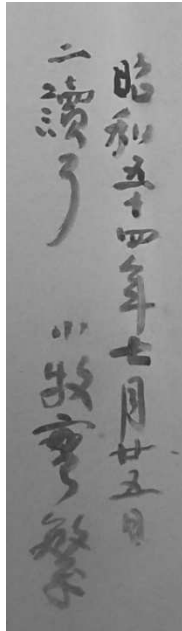 昭和五十四年七月廿五日
二讀了 小牧實繁